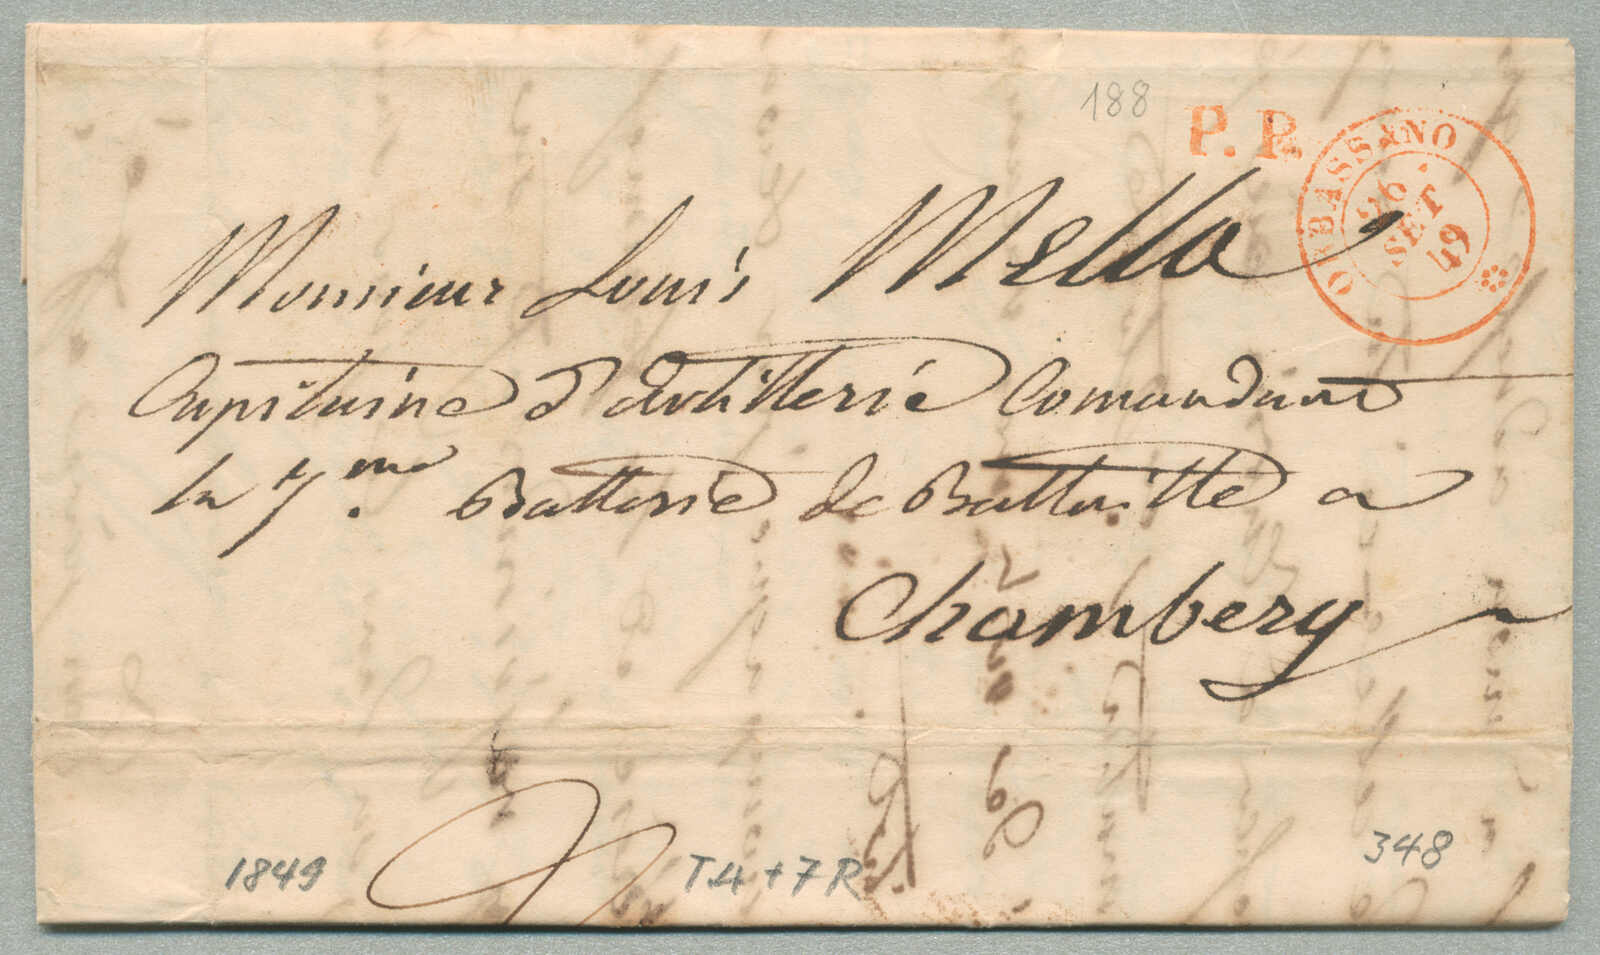 188
P. P.
ORBASSANO
26
SET
49
Monsieur Louis Mella
Capitaine d'Artillerie Comandant
la 7.me Batterie de Battaille a
Chambery
1849
T4+7R
348